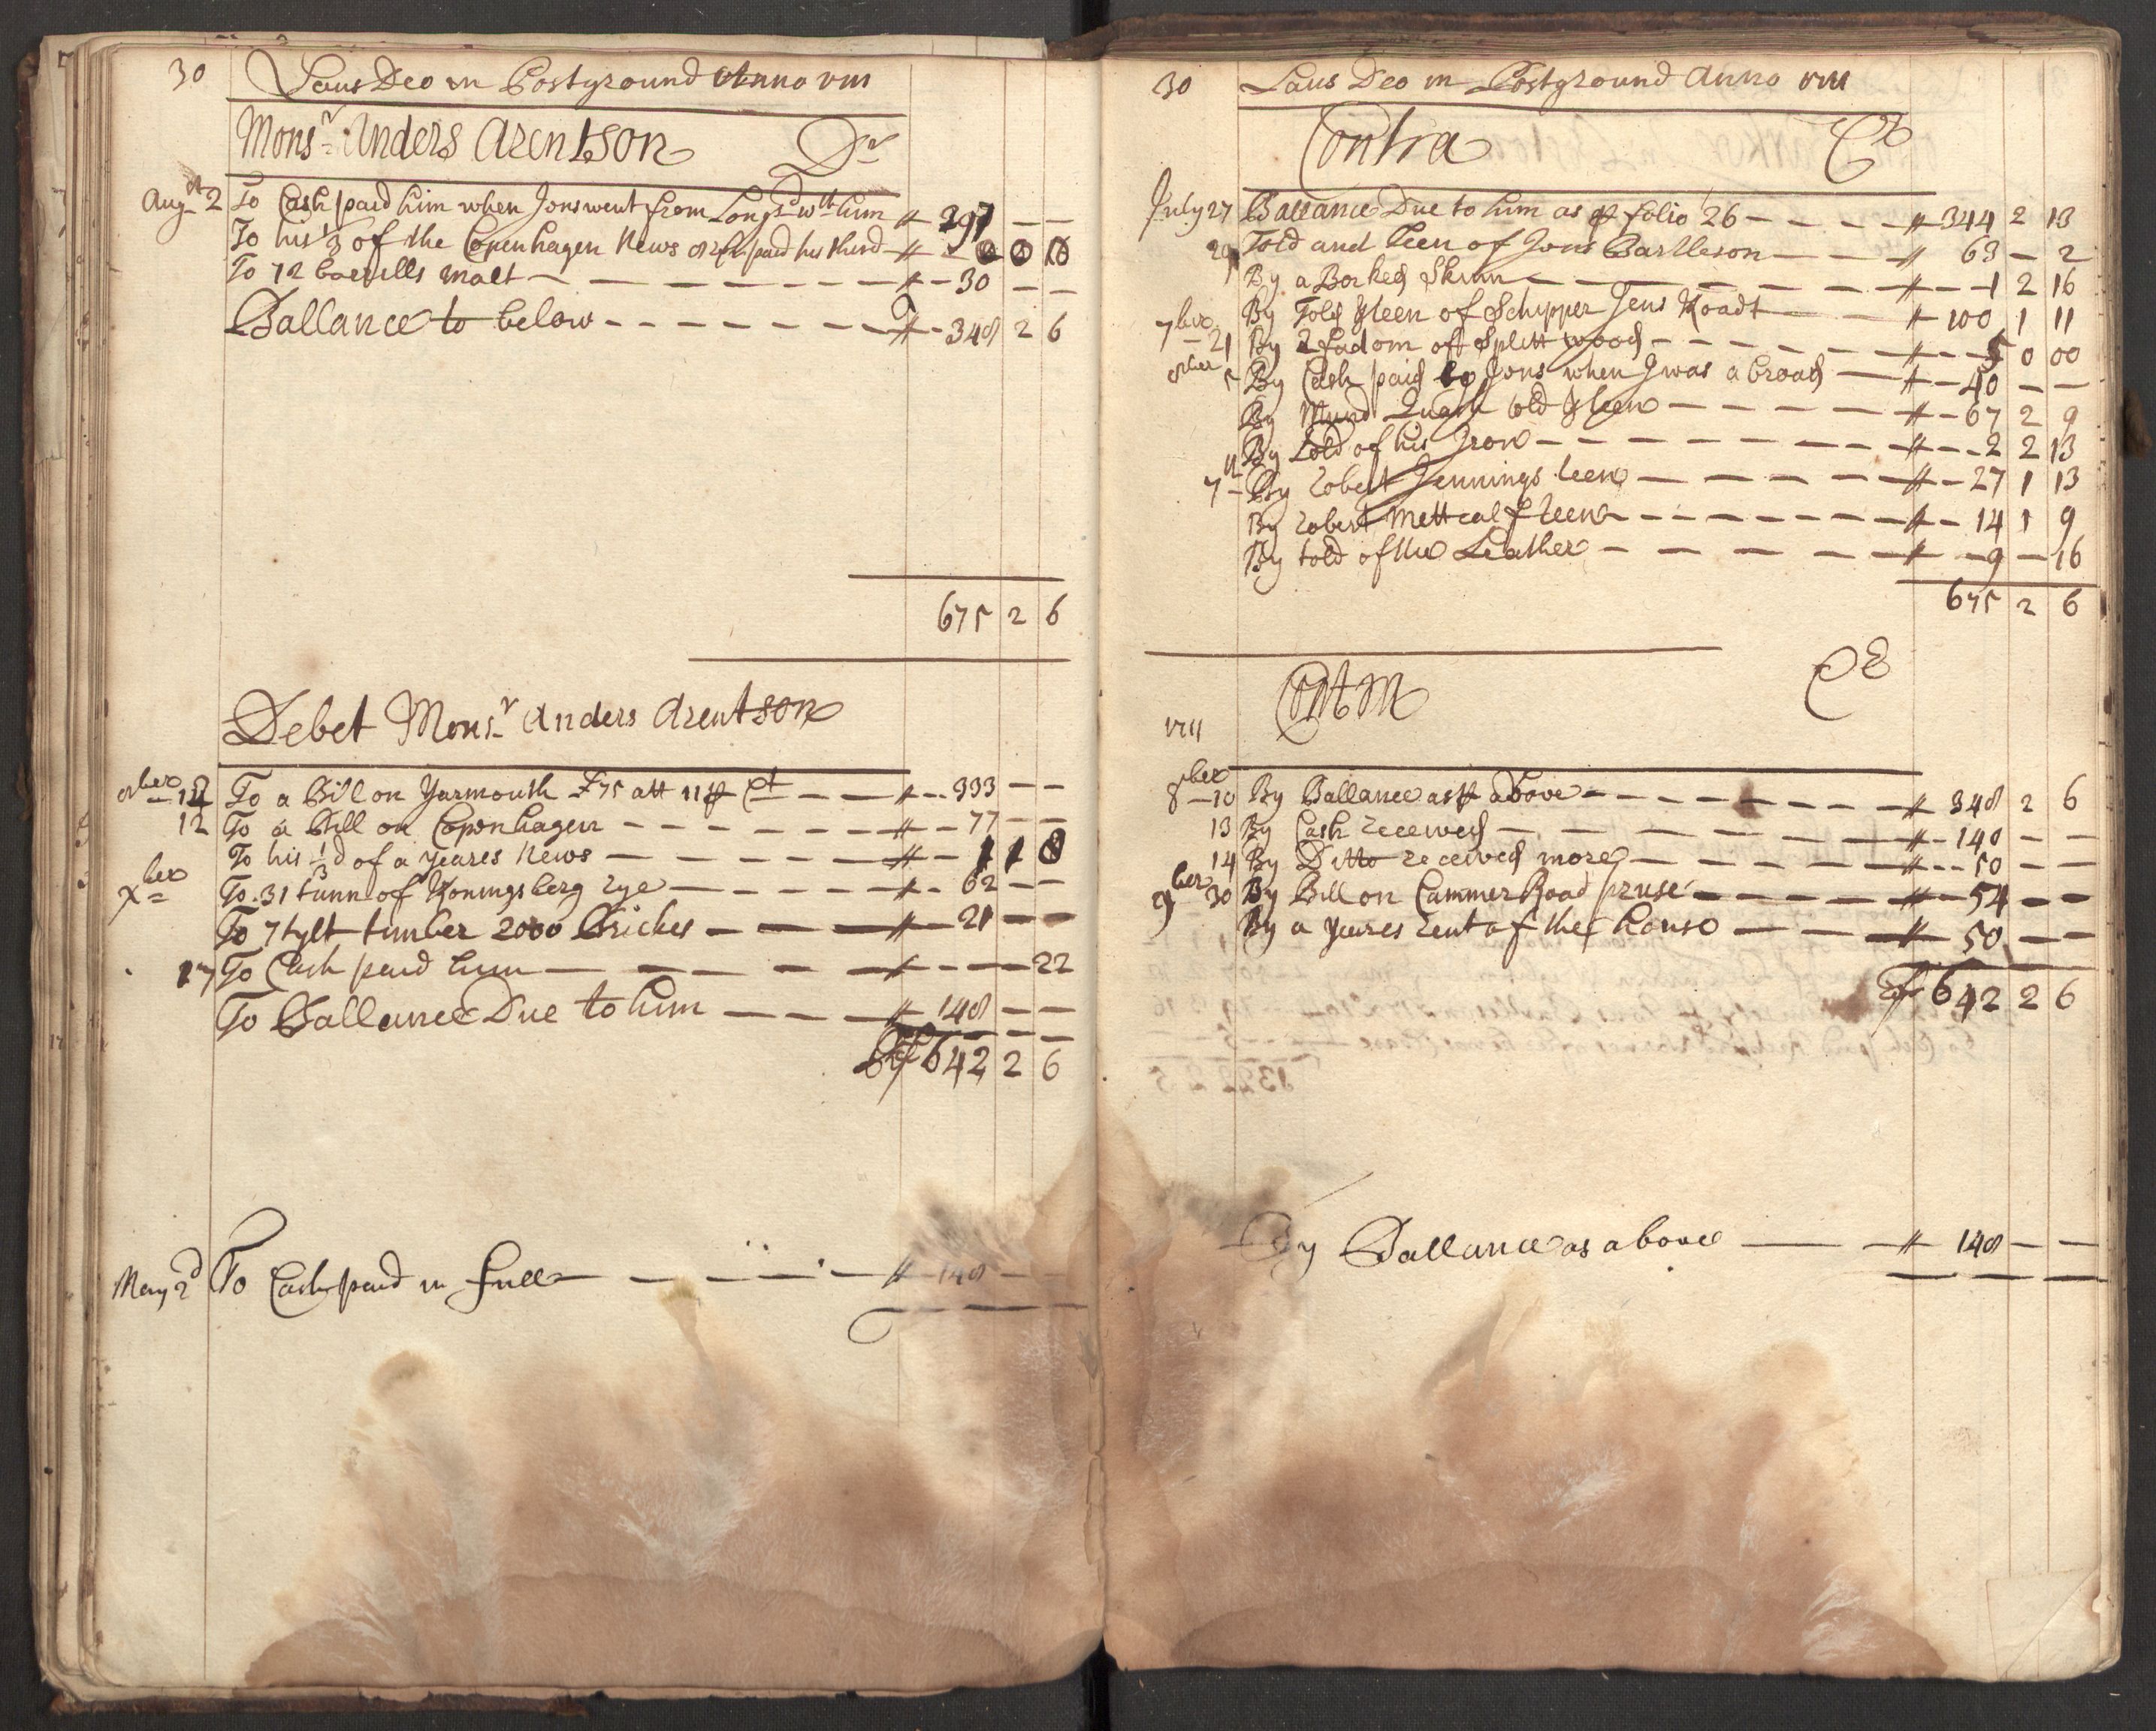 30 Laus Deo in Postground Anno 1711
Monsr Anders Arentson Dr
Augst 2 To Cash paid him when Jons went from Longsd wth him # 297 — —
To his 1/3 of the Copenhagen News paid his third #
To 12 barrills malt # 30 — —
Ballance to below # 348 2 6
675 2 6
Debet Monsr Anders Arentson
8ber 12 To a Bill on Yarmouth £75 att 11 # 333 — —
12 To a Bill on Copenhagen # 77 — —
To his 1/3d of a yeares News # 1 1 8
Xber To 31 tunn of Konningsberg rye # 62 — —
To 7 tylt timber 2000 Brickes # 21 — —
17 To Cash paid him # — — 22
To Ballance Due to him # 148 — —
642 2 6
May 2d To Cash paid in full # 148 — —
30 Laus Deo in Postground Anno 1711
Contra Cr
July 27 Ballance Due to him as p folio 26 # 344 2 13
29 Told and leen of Jons Bartleson # 63 — 2
By a Borked Skinn # 1 2 16
By Told & leen of Schipper Jens Roadt # 100 1 11
7ber 21 By 2 fadom off Splitt wood # 5 0 00
8ber 5 By Cash paid by Jons when I was abroad # 40 — —
By told & leen # 67 2 9
By told of his Iron # 2 2 13
7th By Robert Jennings leen # 27 1 13
By Robert Mettcalf leen # 14 1 9
By told of the Leather # 9 — 16
675 2 6
Contra Cr
1711
8ber 10 By Ballance as p above # 348 2 6
13 By Cash received # 140 — —
14 By Ditto received more # 50 — —
9ber 30 By Bill on Cammer Road pruse # 54 — —
By a yeares rent of the house # 50 — —
642 2 6
By Ballance as above # 148 — —